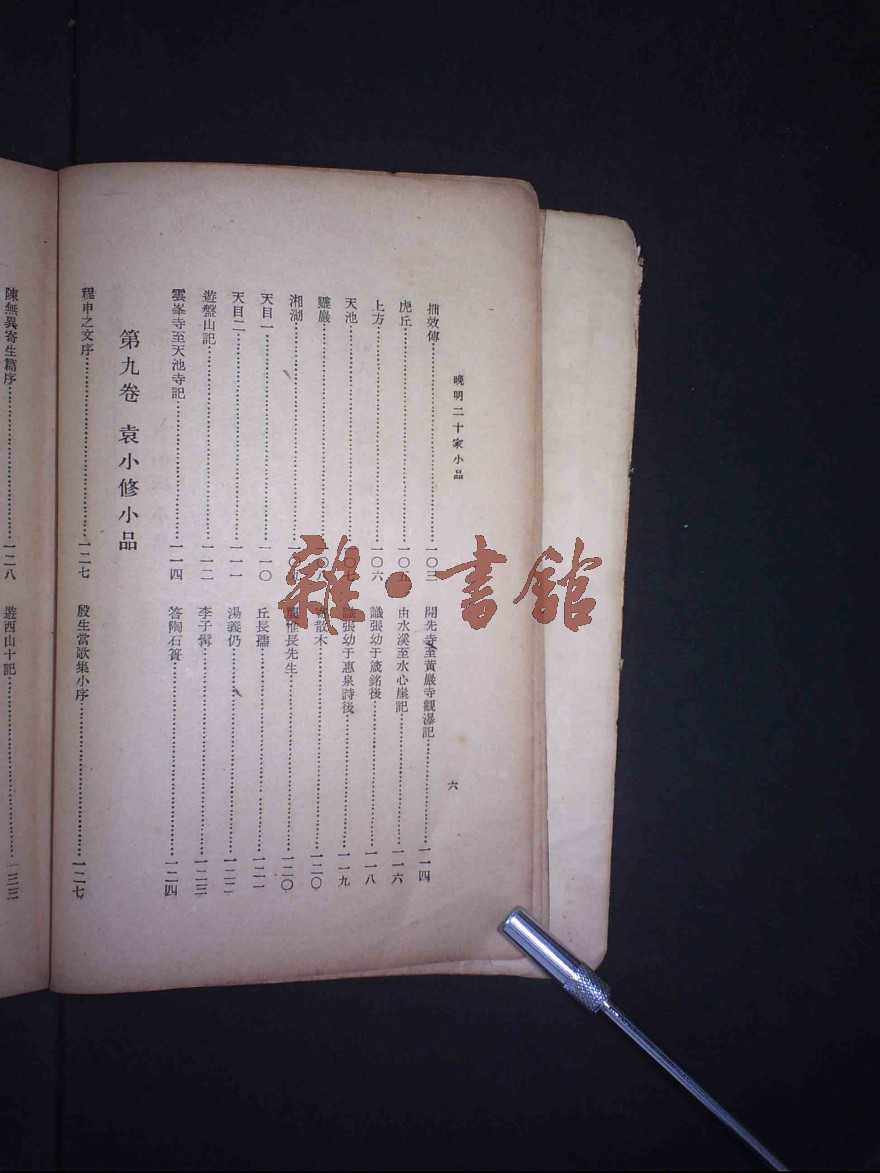 晚明二十家小品
六
拙效傳 一〇三
虎丘 一〇五
上方 一〇六
天池 一〇七
靈巖 一〇八
湘湖 一〇
天目一 一一〇
天目二 一一一
遊盤山記 一一二
雲峯寺至天池寺記 一一四
開先寺至黃巖寺觀瀑記 一一四
由水溪至水心崖記 一一六
識張幼于箴銘後 一一八
識張幼于惠泉詩後 一一九
散木 一二〇
惟長先生 一二〇
丘長孺 一二一
湯義仍 一二二
李子髯 一二三
答陶石簣 一二四
第九卷 袁小修小品
程申之文序 一二七
殷生當歌集小序 一二七
陳無異寄生篇序 一二八
遊西山十記 一三三
雜·書館